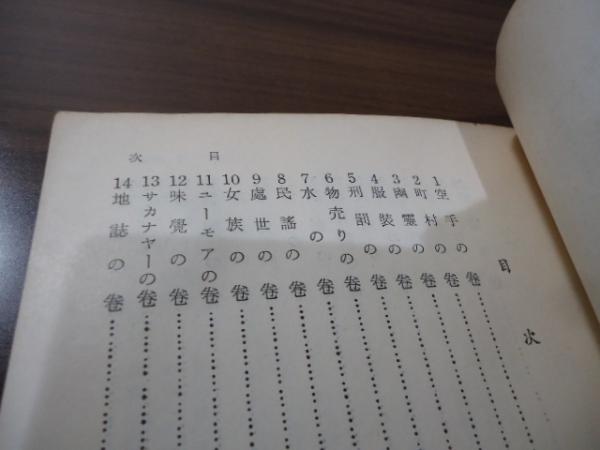 目次
目次
1空手の巻
2町村の巻
3幽霊の巻
4服装の巻
5刑罰の巻
6物売りの巻
7水の巻
8民謠の巻
9處世の巻
10女族の巻
11ユーモアの巻
12味覺の巻
13サカナヤーの巻
14地誌の巻